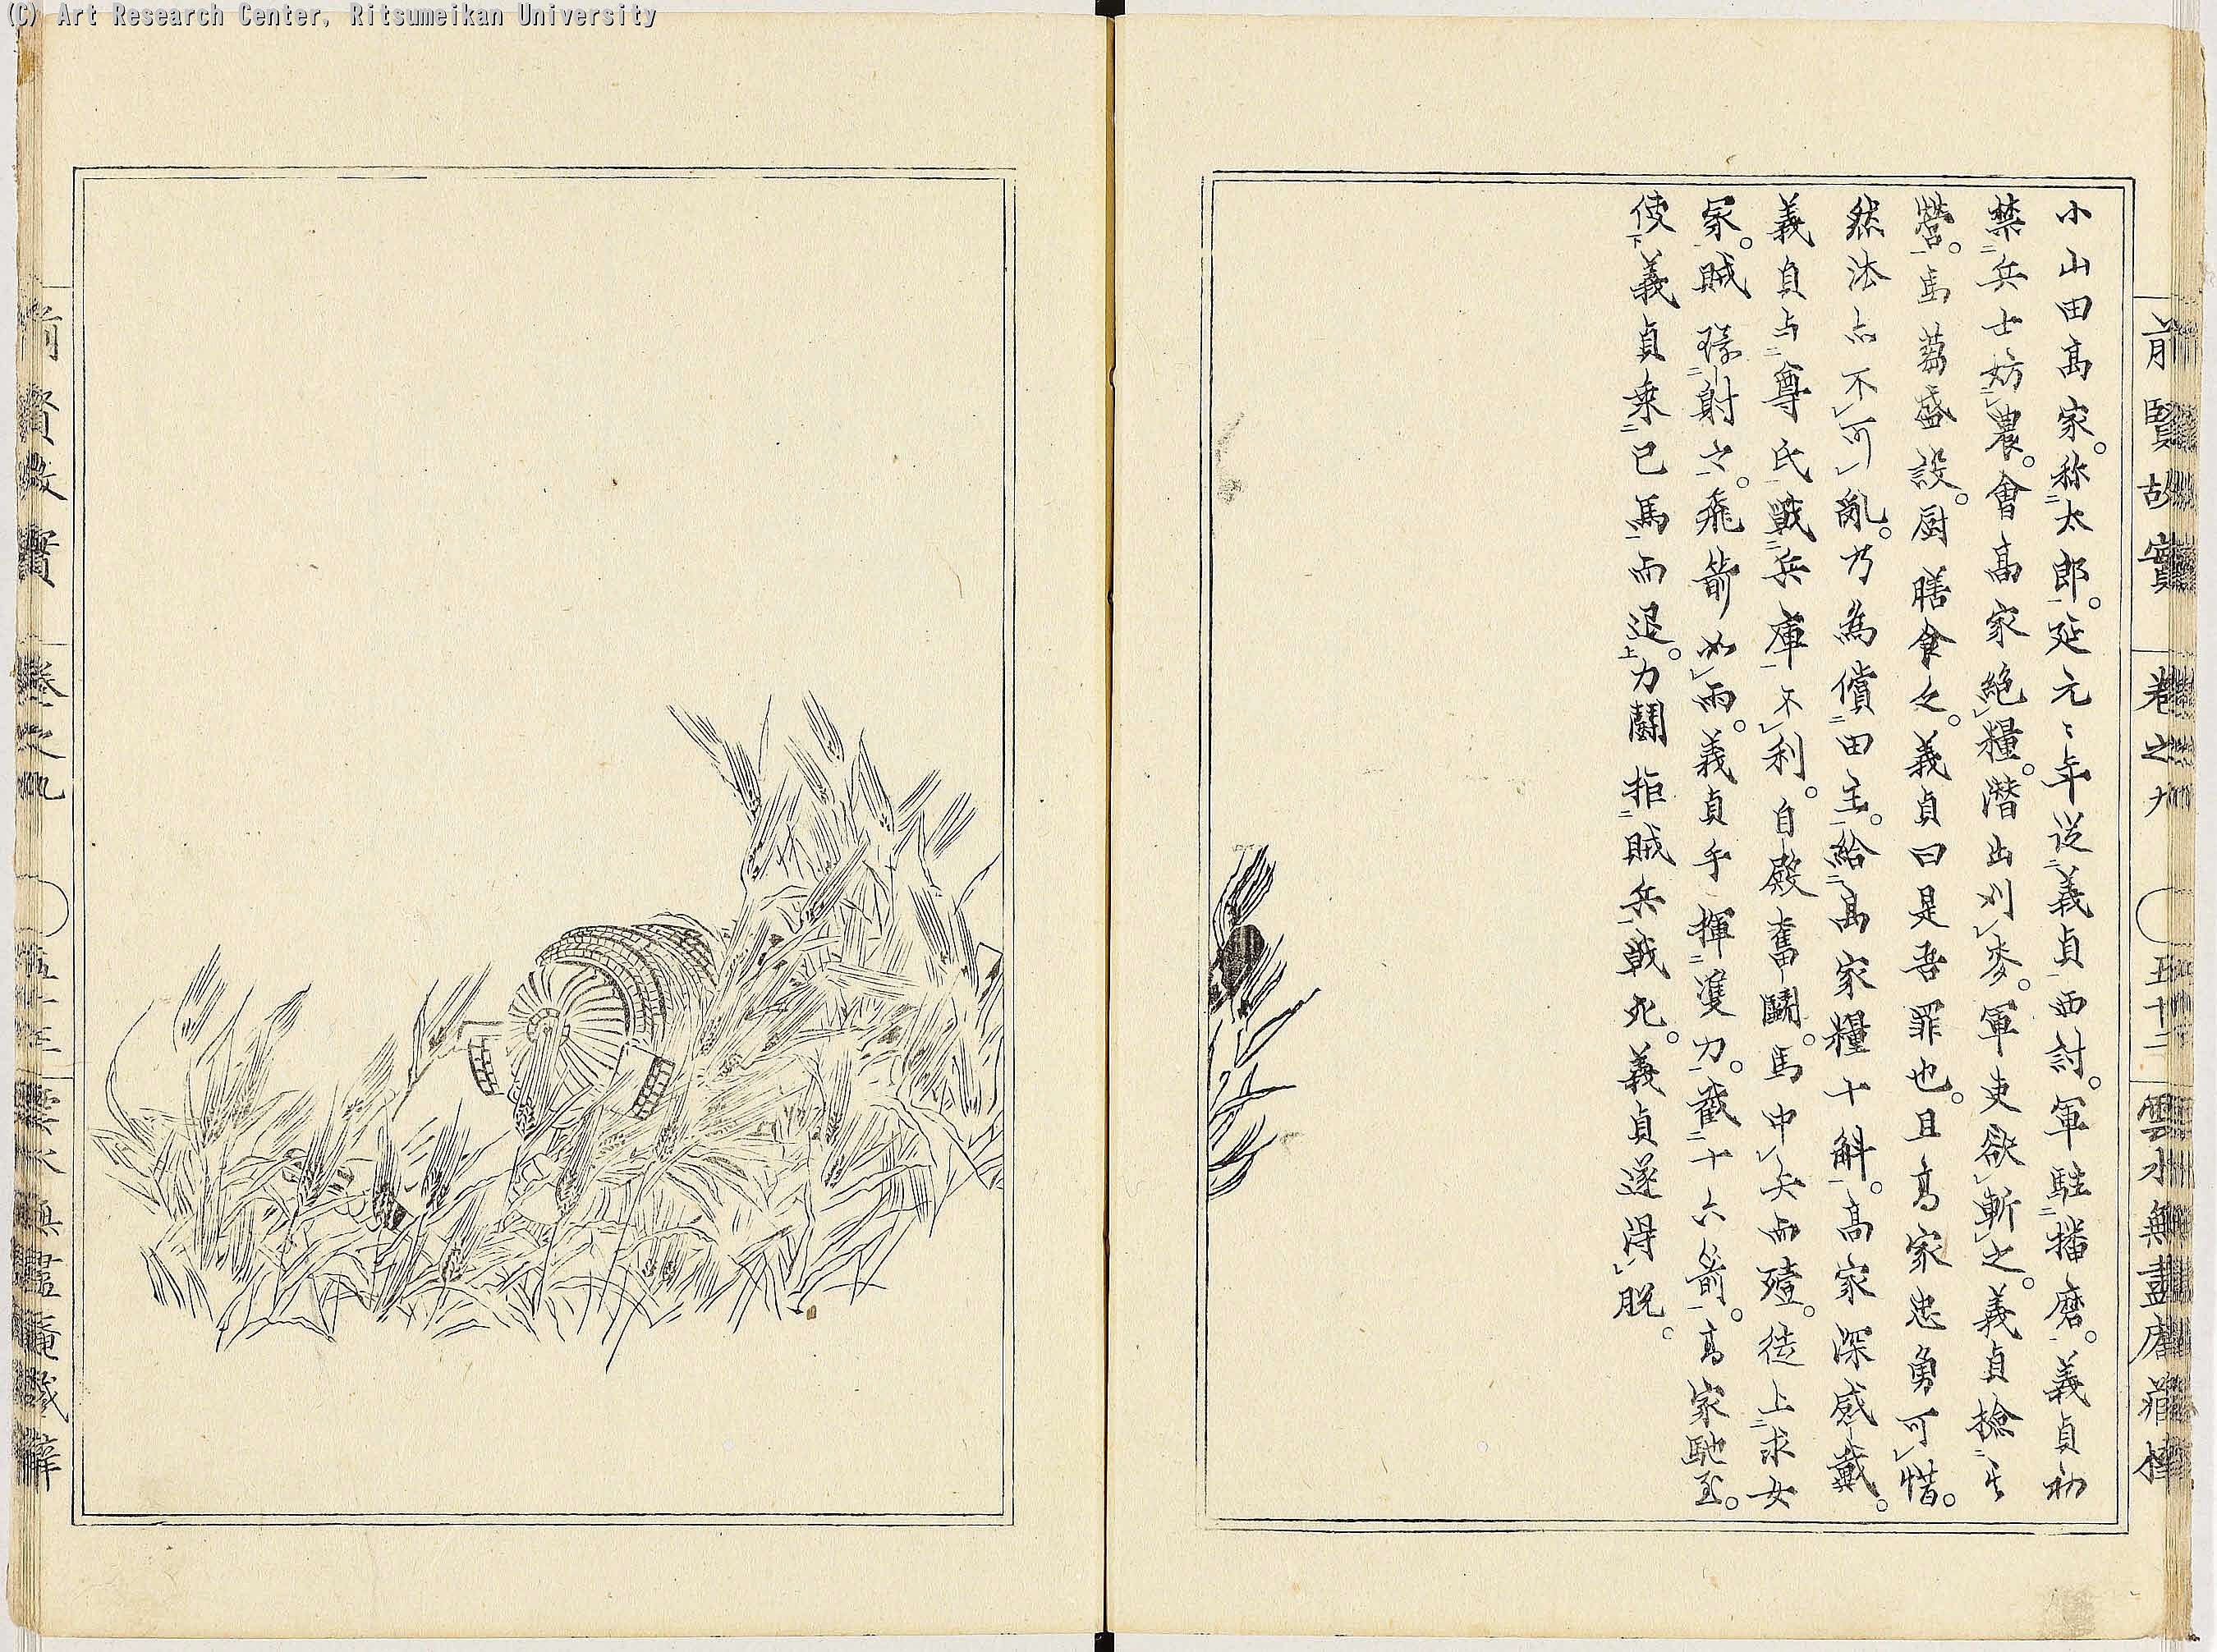 (C) Art Research Center, Ritsumeikan University
前賢故實 巻之九 五十二 雲水無盡庵藏
小山田高家。称太郎。延元々年従義貞西討。軍駐播磨。義貞初
禁兵士妨農。會高家絶糧。潜出刈麥。軍吏欲斬之。義貞撿其
營。馬蒭盛設。厨膳食乏。義貞曰是吾罪也。且高家忠勇可惜。
然法亦不可亂。乃為償田主。給高家糧十斛。高家深感戴。
義貞与尊氏戰兵庫不利。自殿奮鬪。馬中矢而殪。徒上求女
冢。賊環射之。飛箭如雨。義貞手揮雙刀。截十六箭。高家馳至。
使義貞乗己馬而退。力鬪拒賊兵戰死。義貞遂得脱。
前賢故實 巻之九 五十三 雲水無盡庵藏